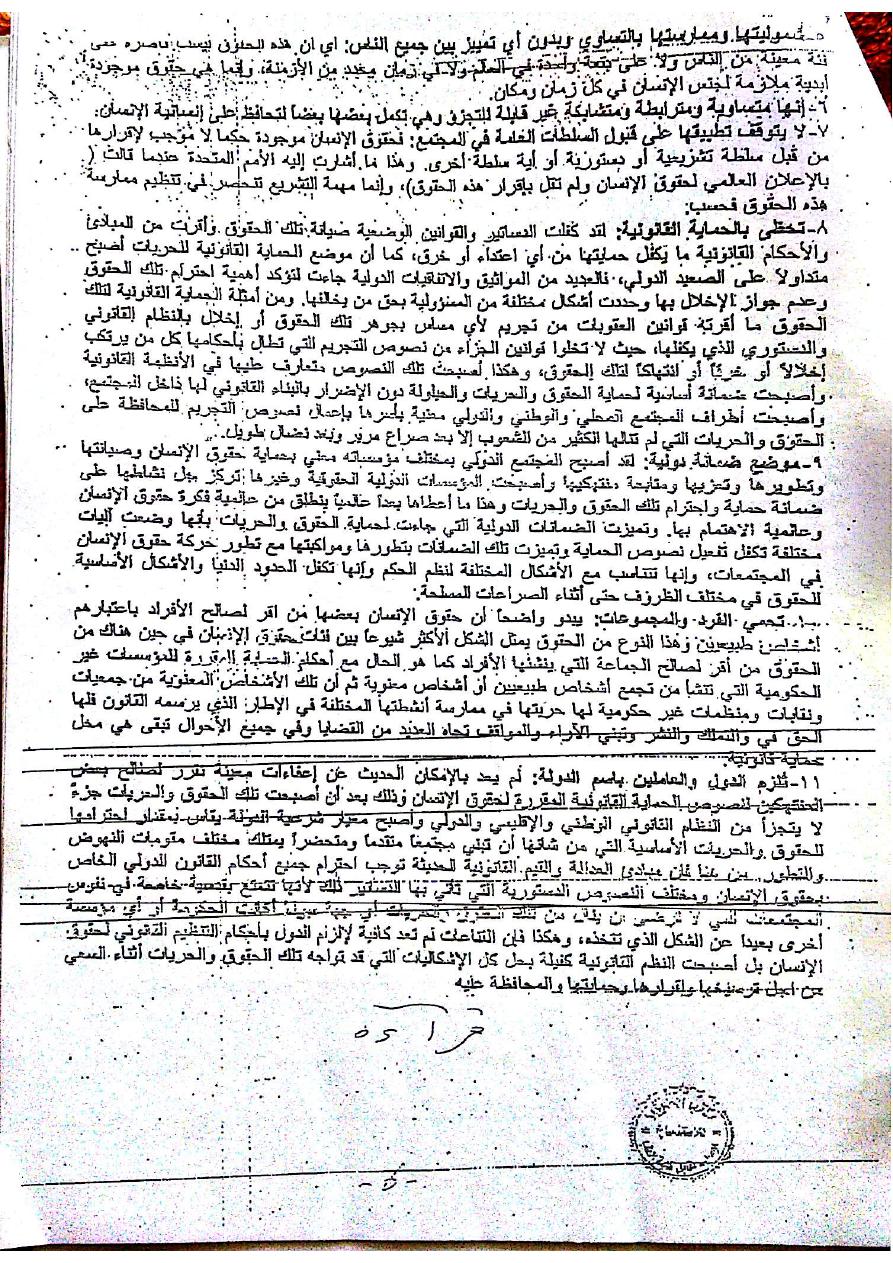 ٥-شموليتها وممارستها بالتساوي وبدون أي تمييز بين جميع الناس: اي ان هذه الحقوق ليست قاصرة على
فئة معينة من الناس ولا على بقعة واحدة في العلم ولا في زمان محدد من الأزمنة، وإنما هي حقوق موجودة
أبدية ملازمة لجنس الإنسان في كل زمان ومكان.
٦-إنها متساوية ومترابطة ومتشابكة غير قابلة للتجزؤ وهي تكمل بعضها بعضاً لتحافظ على إنسانية الإنسان.
٧- لا يتوقف تطبيقها على قبول السلطات العامة في المجتمع: فحقوق الإنسان موجودة حكماً لا موجب لإقرارها
من قبل سلطة تشريعية أو دستورية أو أية سلطة أخرى. وهذا ما أشارت إليه الأمم المتحدة عندما قالت (
بالإعلان العالمي لحقوق الإنسان ولم تقل بإقرار هذه الحقوق)، وإنما مهمة التشريع تنحصر في تنظيم ممارسة
هذه الحقوق فحسب.
٨-تحظى بالحماية القانونية: لقد كفلت الدساتير والقوانين الوضعية صيانة تلك الحقوق وأقرت من المبادئ
والأحكام القانونية ما يكفل حمايتها من أي اعتداء أو خرق، كما أن موضع الحماية القانونية للحريات أصبح
متداولاً على الصعيد الدولي، فالعديد من المواثيق والاتفاقيات الدولية جاءت لتؤكد أهمية احترام تلك الحقوق
وعدم جواز الإخلال بها وحددت أشكال مختلفة من المسؤولية بحق من يخالفها. ومن أمثلة الحماية القانونية لتلك
الحقوق ما أقرته قوانين العقوبات من تجريم لأي مساس بجوهر تلك الحقوق أو إخلال بالنظام القانوني
والدستوري الذي يكفلها، حيث لا تخلوا قوانين الجزاء من نصوص التجريم التي تطال بأحكامها كل من يرتكب
إخلالاً أو خرقاً أو انتهاكاً لتلك الحقوق، وهكذا أصبحت تلك النصوص متعارف عليها في الأنظمة القانونية
وأصبحت ضمانة أساسية لحماية الحقوق والحريات والحيلولة دون الإضرار بالبناء القانوني لها داخل المجتمع،
وأصبحت أطراف المجتمع المحلي والوطني والدولي معنية بأسرها بإعمال نصوص التجريم للمحافظة على
الحقوق والحريات التي لم تنالها الكثير من الشعوب إلا بعد صراع مرير وبعد نضال طويل.
٩-موضع ضمانة دولية: لقد أصبح المجتمع الدولي بمختلف مؤسساته معني بحماية حقوق الإنسان وصيانتها
وتطويرها وتعزيزها ومتابعة منتهكيها وأصبحت المؤسسات الدولية الحقوقية وغيرها تركز جل نشاطها على
ضمانة حماية واحترام تلك الحقوق والحريات وهذا ما أعطاها بعداً عالمياً ينطلق من عالمية فكرة حقوق الإنسان
وعالمية الاهتمام بها. وتميزت الضمانات الدولية التي جاءت لحماية الحقوق والحريات بأنها وضعت آليات
مختلفة تكفل تفعيل نصوص الحماية وتميزت تلك الضمانات بتطورها ومواكبتها مع تطور حركة حقوق الإنسان
في المجتمعات، وإنها تتناسب مع الأشكال المختلفة لنظم الحكم وإنها تكفل الحدود الدنيا والأشكال الأساسية
للحقوق في مختلف الظروف حتى أثناء الصراعات المسلحة.
١٠-تحمي الفرد والمجموعات: يبدو واضحاً أن حقوق الإنسان بعضها من اقر لصالح الأفراد باعتبارهم
أشخاص طبيعيين وهذا النوع من الحقوق يمثل الشكل الأكثر شيوعاً بين فئات حقوق الإنسان في حين هناك من
الحقوق من أقر لصالح الجماعة التي ينشئها الأفراد كما هو الحال مع أحكام الحماية المقررة للمؤسسات غير
الحكومية التي تنشأ من تجمع أشخاص طبيعيين أو أشخاص معنوية ثم أن تلك الأشخاص المعنوية من جمعيات
ونقابات ومنظمات غير حكومية لها حريتها في ممارسة أنشطتها المختلفة في الإطار الذي يرسمه القانون فلها
الحق في والتملك والنشر وتبني الآراء والمواقف تجاه العديد من القضايا وفي جميع الأحوال تبقى هي محل
حماية قانونية.
١١-تلزم الدول والعاملين باسم الدولة: لم يعد بالإمكان الحديث عن إعفاءات معينة تقرر لصالح بعض
المنتهكين لنصوص الحماية القانونية المقررة لحقوق الإنسان وذلك بعد أن أصبحت تلك الحقوق والحريات جزءً
لا يتجزأ من النظام القانوني الوطني والإقليمي والدولي وأصبح معيار شرعية الدولة يقاس بمقدار احترامها
للحقوق والحريات الأساسية التي من شانها أن تبني مجتمعاً متقدماً ومتحضراً يمتلك مختلف مقومات النهوض
والتطور. من هنا فان مبادئ العدالة والقيم القانونية الحديثة توجب احترام جميع أحكام القانون الدولي الخاص
بحقوق الإنسان ومختلف النصوص الدستورية التي تأتي بها الدساتير ذلك لأنها تتمتع بقدسية خاصة في نفوس
المجتمعات التي لا ترضى ان ينال من تلك الحقوق والحريات أي جهة سواء أكانت الحكومة أو أي مؤسسة
أخرى بعيدا عن الشكل الذي تتخذه، وهكذا فإن القناعات لم تعد كافية لإلزام الدول بأحكام التنظيم القانوني لحقوق
الإنسان بل أصبحت النظم القانونية كفيلة بحل كل الإشكاليات التي قد تواجه تلك الحقوق والحريات أثناء السعي
من اجل ترسيخها وإقرارها وحمايتها والمحافظة عليه
قراءة
- ٥ -